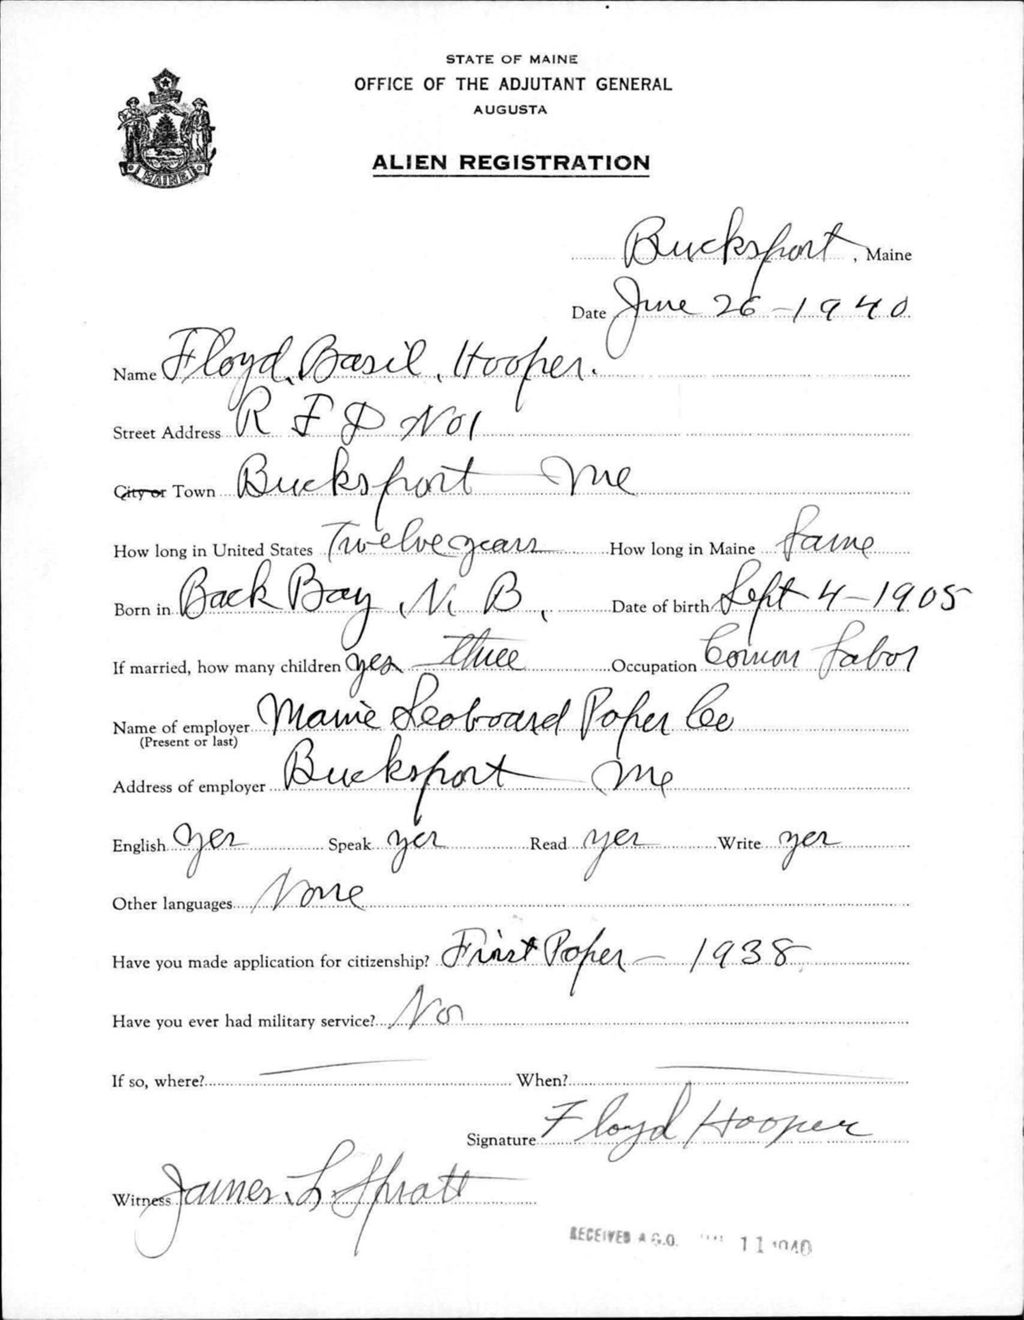 STATE OF MAINE
OFFICE OF THE ADJUTANT GENERAL
AUGUSTA
ALIEN REGISTRATION
MAINE
Bucksport, Maine
Date June 26-1940
Name Floyd, Basil, Hooper.
Street Address R F D No 1
City or Town Bucksport Me
How long in United States Twelve years How long in Maine Same
Born in Back Bay, N. B. Date of birth Sept 4-1905
If married, how many children yes three Occupation Common Labor
Name of employer Maine Seaboard Paper Co
(Present or last)
Address of employer Bucksport Me
English yes Speak yes Read yes Write yes
Other languages None
Have you made application for citizenship? First Paper - 1938
Have you ever had military service? No
If so, where? When?
Signature Floyd Hooper
Witness James L. Spratt
RECEIVED A.G.O. 11 1940